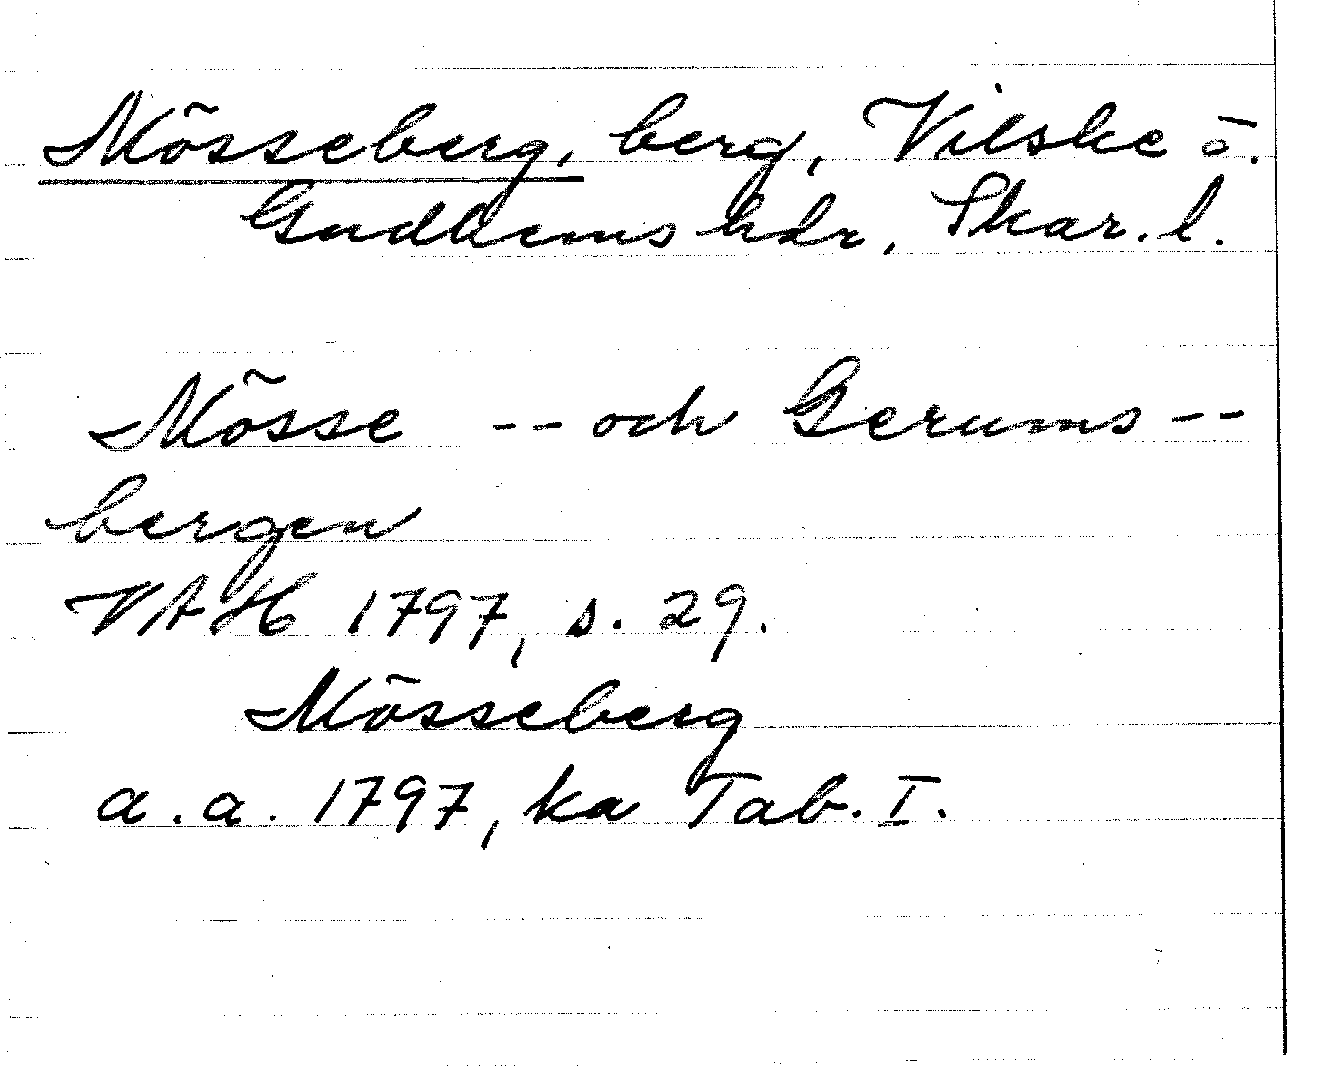 Mösseberg, berg, Vilske o.
Gudhems hdr, Skar. l.
Mösse -- och Gerums --
bergen
VAH 1797, s. 29.
Mösseberg
a.a. 1797, ka Tab. I.